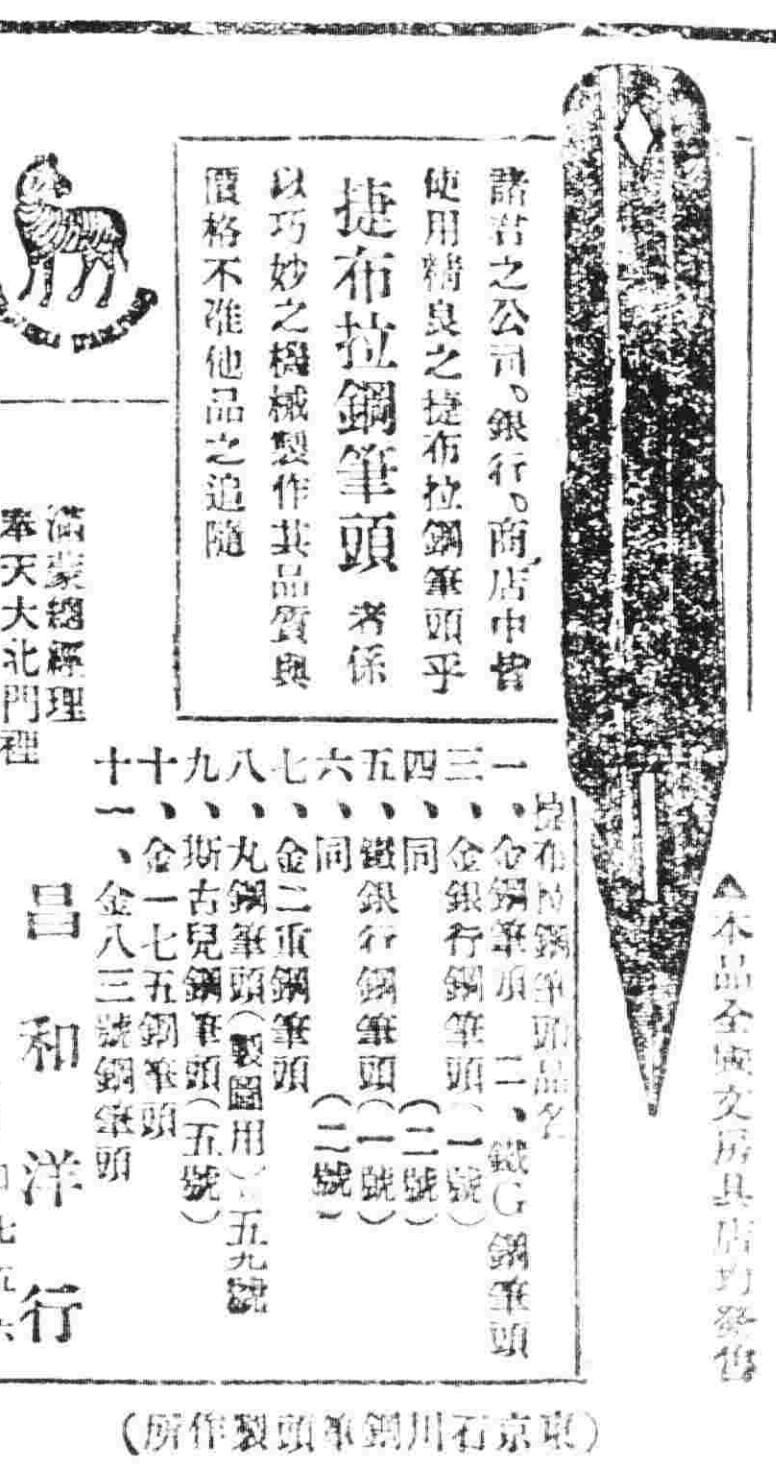 ▲本品全國文房具店均發售
諸君之公司、銀行、商店中皆
使用精良之捷布拉鋼筆頭乎
捷布拉鋼筆頭者係
以巧妙之機械製作其品質與
價格不准他品之追隨
捷布拉鋼筆頭品名
一、金鋼筆頭 二、鐵G鋼筆頭
三、金銀行鋼筆頭(一號)
四、同(二號)
五、鐵銀行鋼筆頭(一號)
六、同(二號)
七、金二重鋼筆頭
八、丸鋼筆頭(製圖用)三五九號
九、斯古兒鋼筆頭(五號)
十、金一七五鋼筆頭
十一、金八三號鋼筆頭
滿蒙總經理
奉天大北門裡
昌和洋行
七五六
(東京石川鋼筆頭製作所)